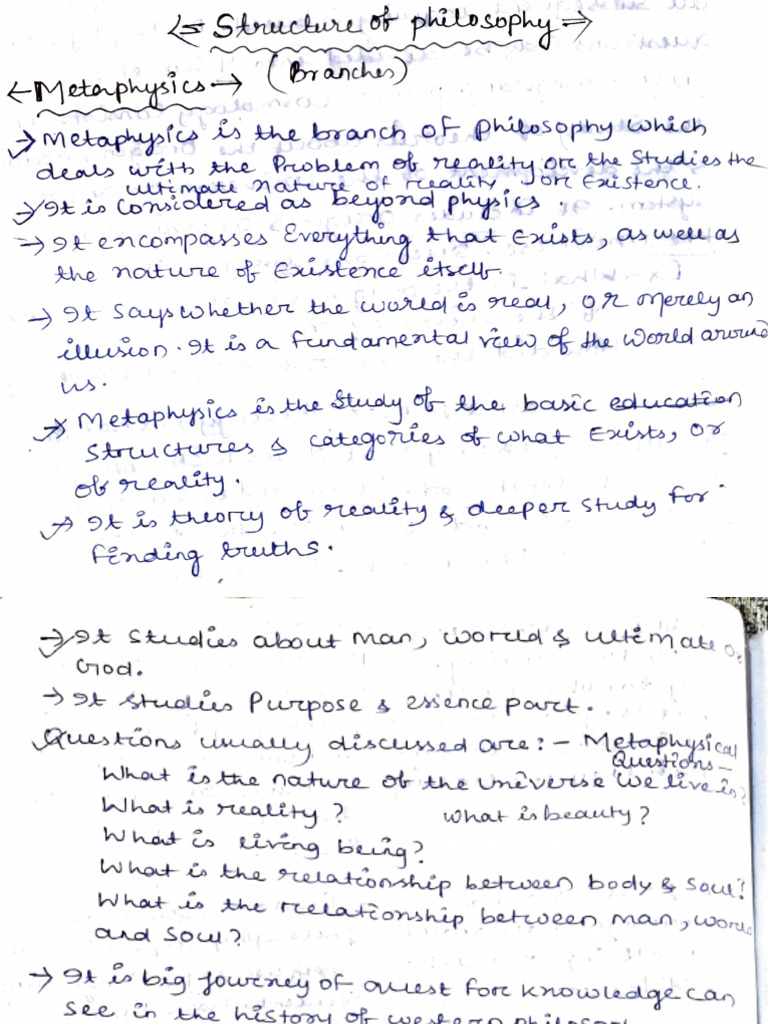 Structure of philosophy
(Branches)
Metaphysics →
→ Metaphysics is the branch of philosophy which
deals with the Problem of reality or the studies the
ultimate nature of reality or Existence.
→ It is considered as beyond physics.
→ It encompasses Everything that Exists, as well as
the nature of Existence itself.
→ It says whether the world is real, or merely an
illusion. It is a fundamental view of the world around
us.
→ Metaphysics is the study of the basic education
structures & categories of what Exists, or
of reality.
→ It is theory of reality & deeper study for
finding truths.
→ It studies about man, world & ultimate or
God.
→ It studies Purpose & essence part.
Questions usually discussed are: - Metaphysical
Questions -
What is the nature of the universe we live in?
What is reality? What is beauty?
What is living being?
What is the relationship between body & soul?
What is the relationship between man, world
and soul?
→ It is big journey of quest for knowledge can
see in the history of western